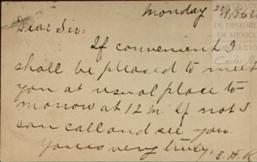 Monday
Dear Sir:
If convenient I
shall be pleased to meet
you at usual place to-
morrow at 12 m. If not I
can call and see you.
Yours very truly,
E. H. R